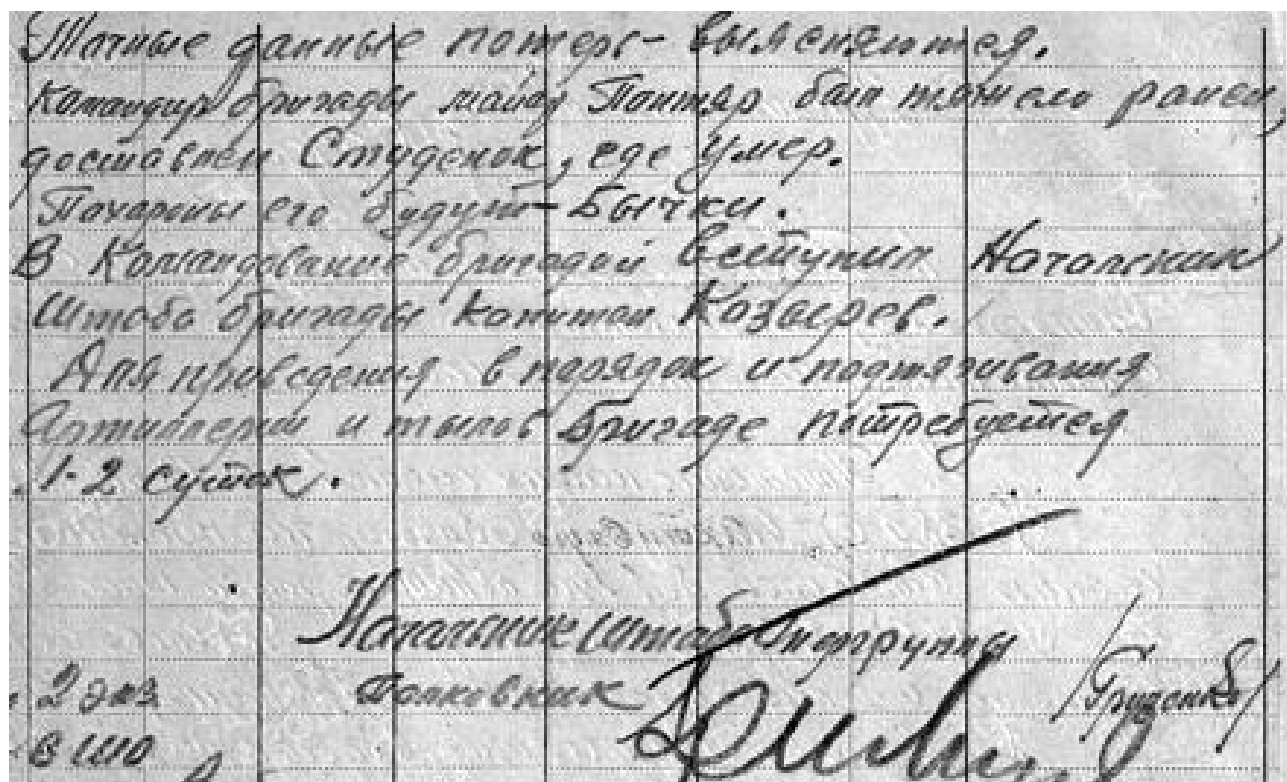 Точные данные потерь - выясняются.
Командир бригады майор Пантяр был тяжело ранен,
доставлен Студенок, где умер.
Похороны его будут - Бычки.
В Командование бригадой вступил Начальник
Штаба бригады Капитан Козырев.
Для приведения в порядок и подтягивания
Артиллерии и тылов Бригаде потребуется
1-2 суток.
Начальник Штаба Опергруппы
Полковник /Гриценко/
2 экз
В ШО